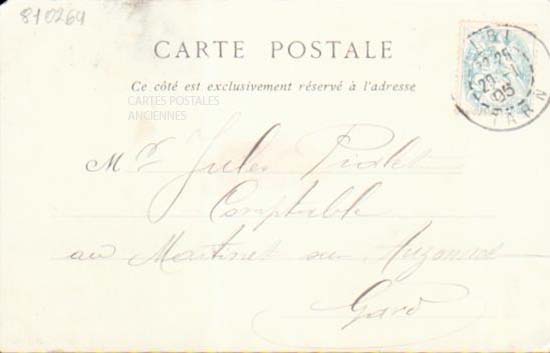 810264
CARTE POSTALE
Ce côté est exclusivement réservé à l'adresse
CARTES POSTALES
ANCIENNES
Mr Jules
Comptable
au Martinet sur Auzonnet
Gard
ALBI
29 - 1
05
TARN